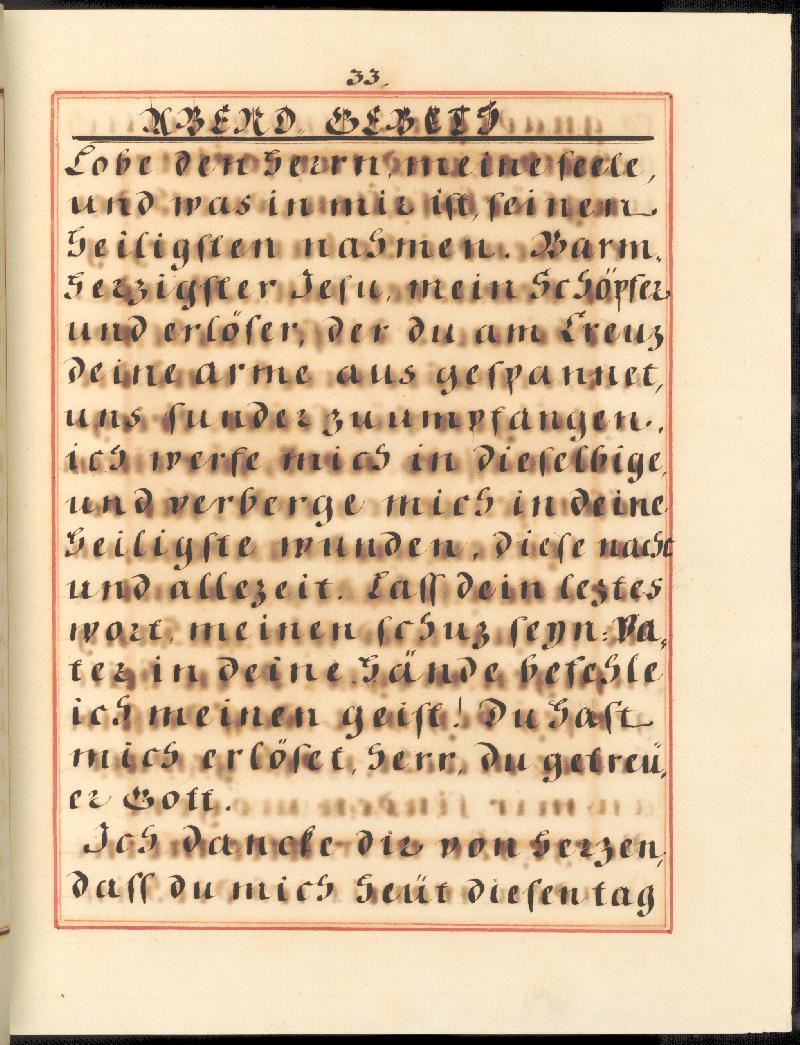 33.
ABEND GEBETH
Lobe den herrn, meine seele,
und was in mir ist, seinen
heiligsten nahmen. Barm,
herzigster Jesu, mein schöpfer
und erlöser, der du am Creuz
deine arme aus gespannet,
uns sunder zu umpfangen.,
ich werfe mich in dieselbige,
und verberge mich in deine
heiligste wunden, diese nacht
und allezeit. Lass dein leztes
wort, meinen schuz seyn: Va,
ter in deine hände befehle
ich meinen geist! Du hast
mich erlöset, herr, du getreü,
er Gott.
Ich dancke dir von herzen,
dass du mich heüt diesen tag